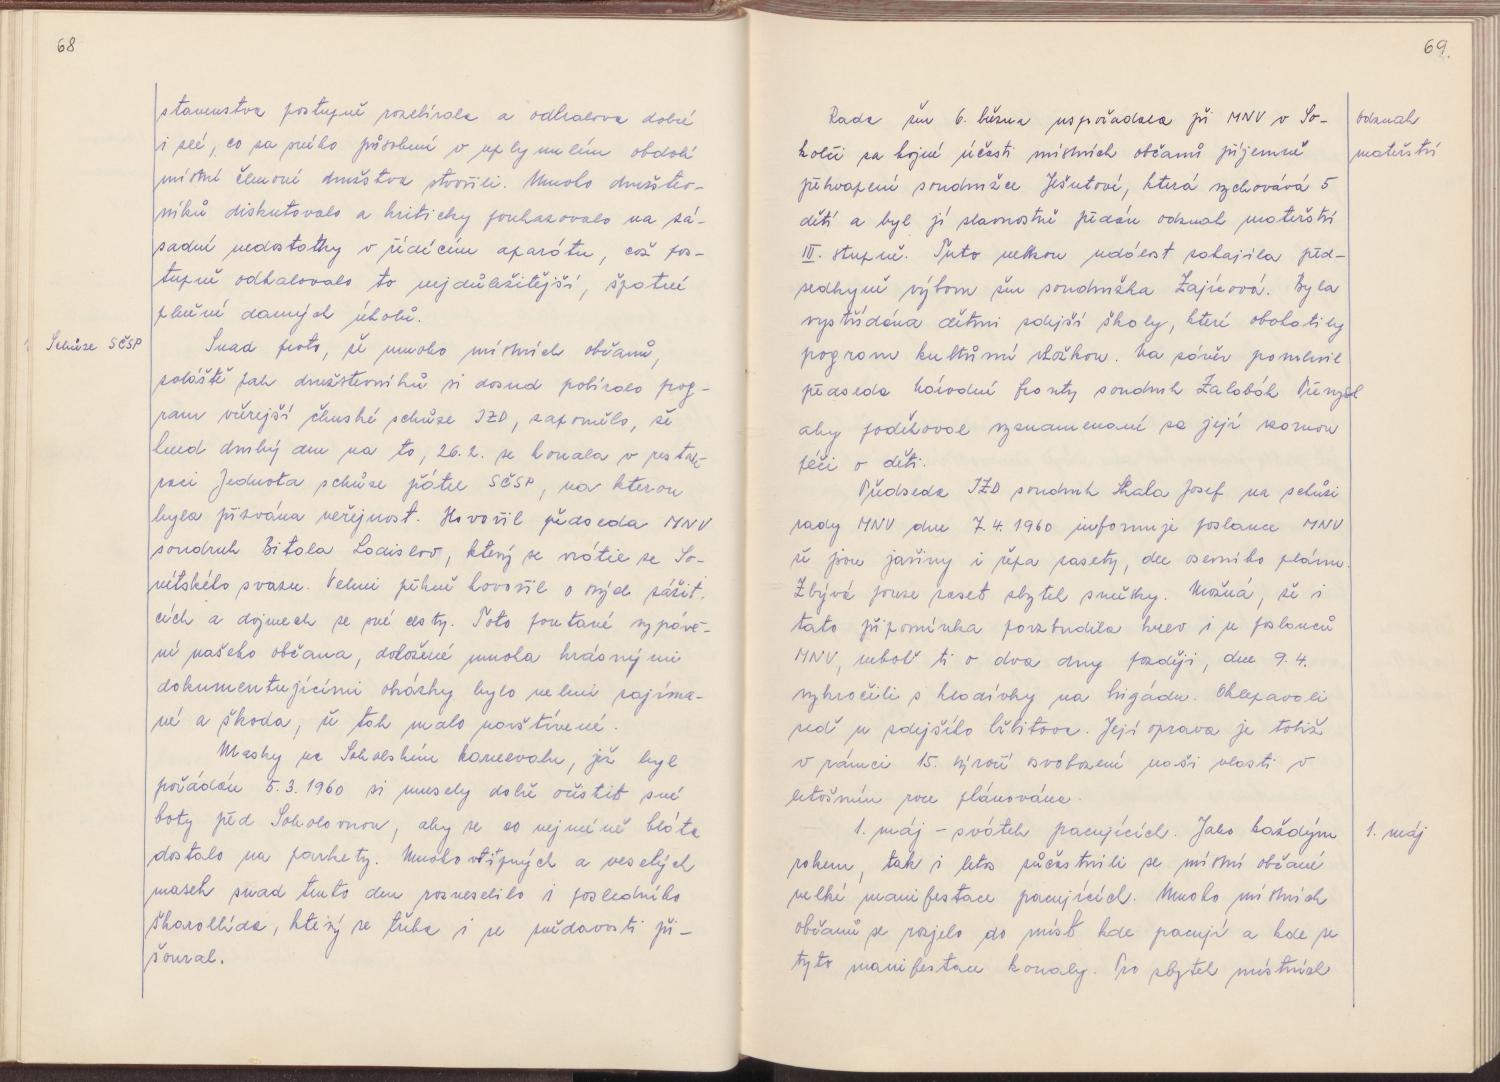 68
stavenstva postupně rozebírala a odhalova dobré
i zlé, co za svého působení v uplynulém období
místní členové družstva stvořili. Mnoho družstev-
níků diskutovalo a kriticky poukazovalo na zá-
sadní nedostatky v řídícím aparátu, což pos-
tupně odhalovalo to nejdůležitější, špatné
plnění daných úkolů.
Schůze SČSP
Snad proto, že mnoho místních občanů,
zvláště pak družstevníků si dosud pobíralo prog-
ram včerejší členské schůze JZD, zapomělo, že
hned druhý den na to, 26.2. se konala v restau-
raci Jednota schůze přátel SČSP, na kterou
byla přizvána veřejnost. Hovořil předseda MNV
soudruh Bitala Ladislav, který se vrátil ze So-
větského svazu. Velmi pěkně hovořil o svých zážit-
cích a dojmech ze své cesty. Toto poutavé vyprávě-
ní našeho občana, doložené mnoha krásnými
dokumentujícími obrázky bylo velmi zajíma-
vé a škoda, že tak málo navštívené.
Masky na Sokolském karnevalu, jež byl
pořádán 5.3.1960 si musely dobře očistit své
boty před Sokolovnou, aby se co nejméně bláta
dostalo na parkety. Mnoho vtipných a veselých
masek snad tento den rozveselilo i posledního
škarohlída, který se třeba i ze zvědavosti při-
šoural.
69.
Rada žen 6. března uspořádala při MNV v So-
kolči za hojné účasti místních občanů příjemné
překvapení soudružce Ješutové, která vychovává 5
dětí a byl jí slavnostně předán odznak mateřství
III. stupně. Tuto velkou událost zahájila před-
sedkyně výboru žen soudružka Zajícová. Byla
vystřídána dětmi zdejší školy, které obohatily
pogram kultůrní vložkou. Na závěr promluvil
předseda Národní fronty soudruh Žalobák Přemysl
aby poděkoval vyznamenané za její vzornou
péči o děti.
odznak
mateřství
Předseda JZD soudruh Skala Josef na schůzi
rady MNV dne 7.4.1960 informuje poslance MNV
že jsou jařiny i řepa zasety, dle osevního plánu.
Zbývá pouze zaset zbytek směsky. Možná, že i
tato připomínka povzbudila krev i u poslanců
MNV, neboť ti o dva dny později, dne 9.4.
vykročili s kladívky na brigádu. Oklepavali
zeď u zdejšího hřbitova. Její oprava je totiž
v rámci 15. výročí osvobození naší vlasti v
letošním roce plánována.
1. máj – svátek pacujících. Jako každým
rokem, tak i letos zůčastnili se místní občané
velké manifestace pracujících. Mnoho místních
občanů se rozjelo do míst kde pacují a kde se
tyto manifestace konaly. Pro zbytek místních
1. máj